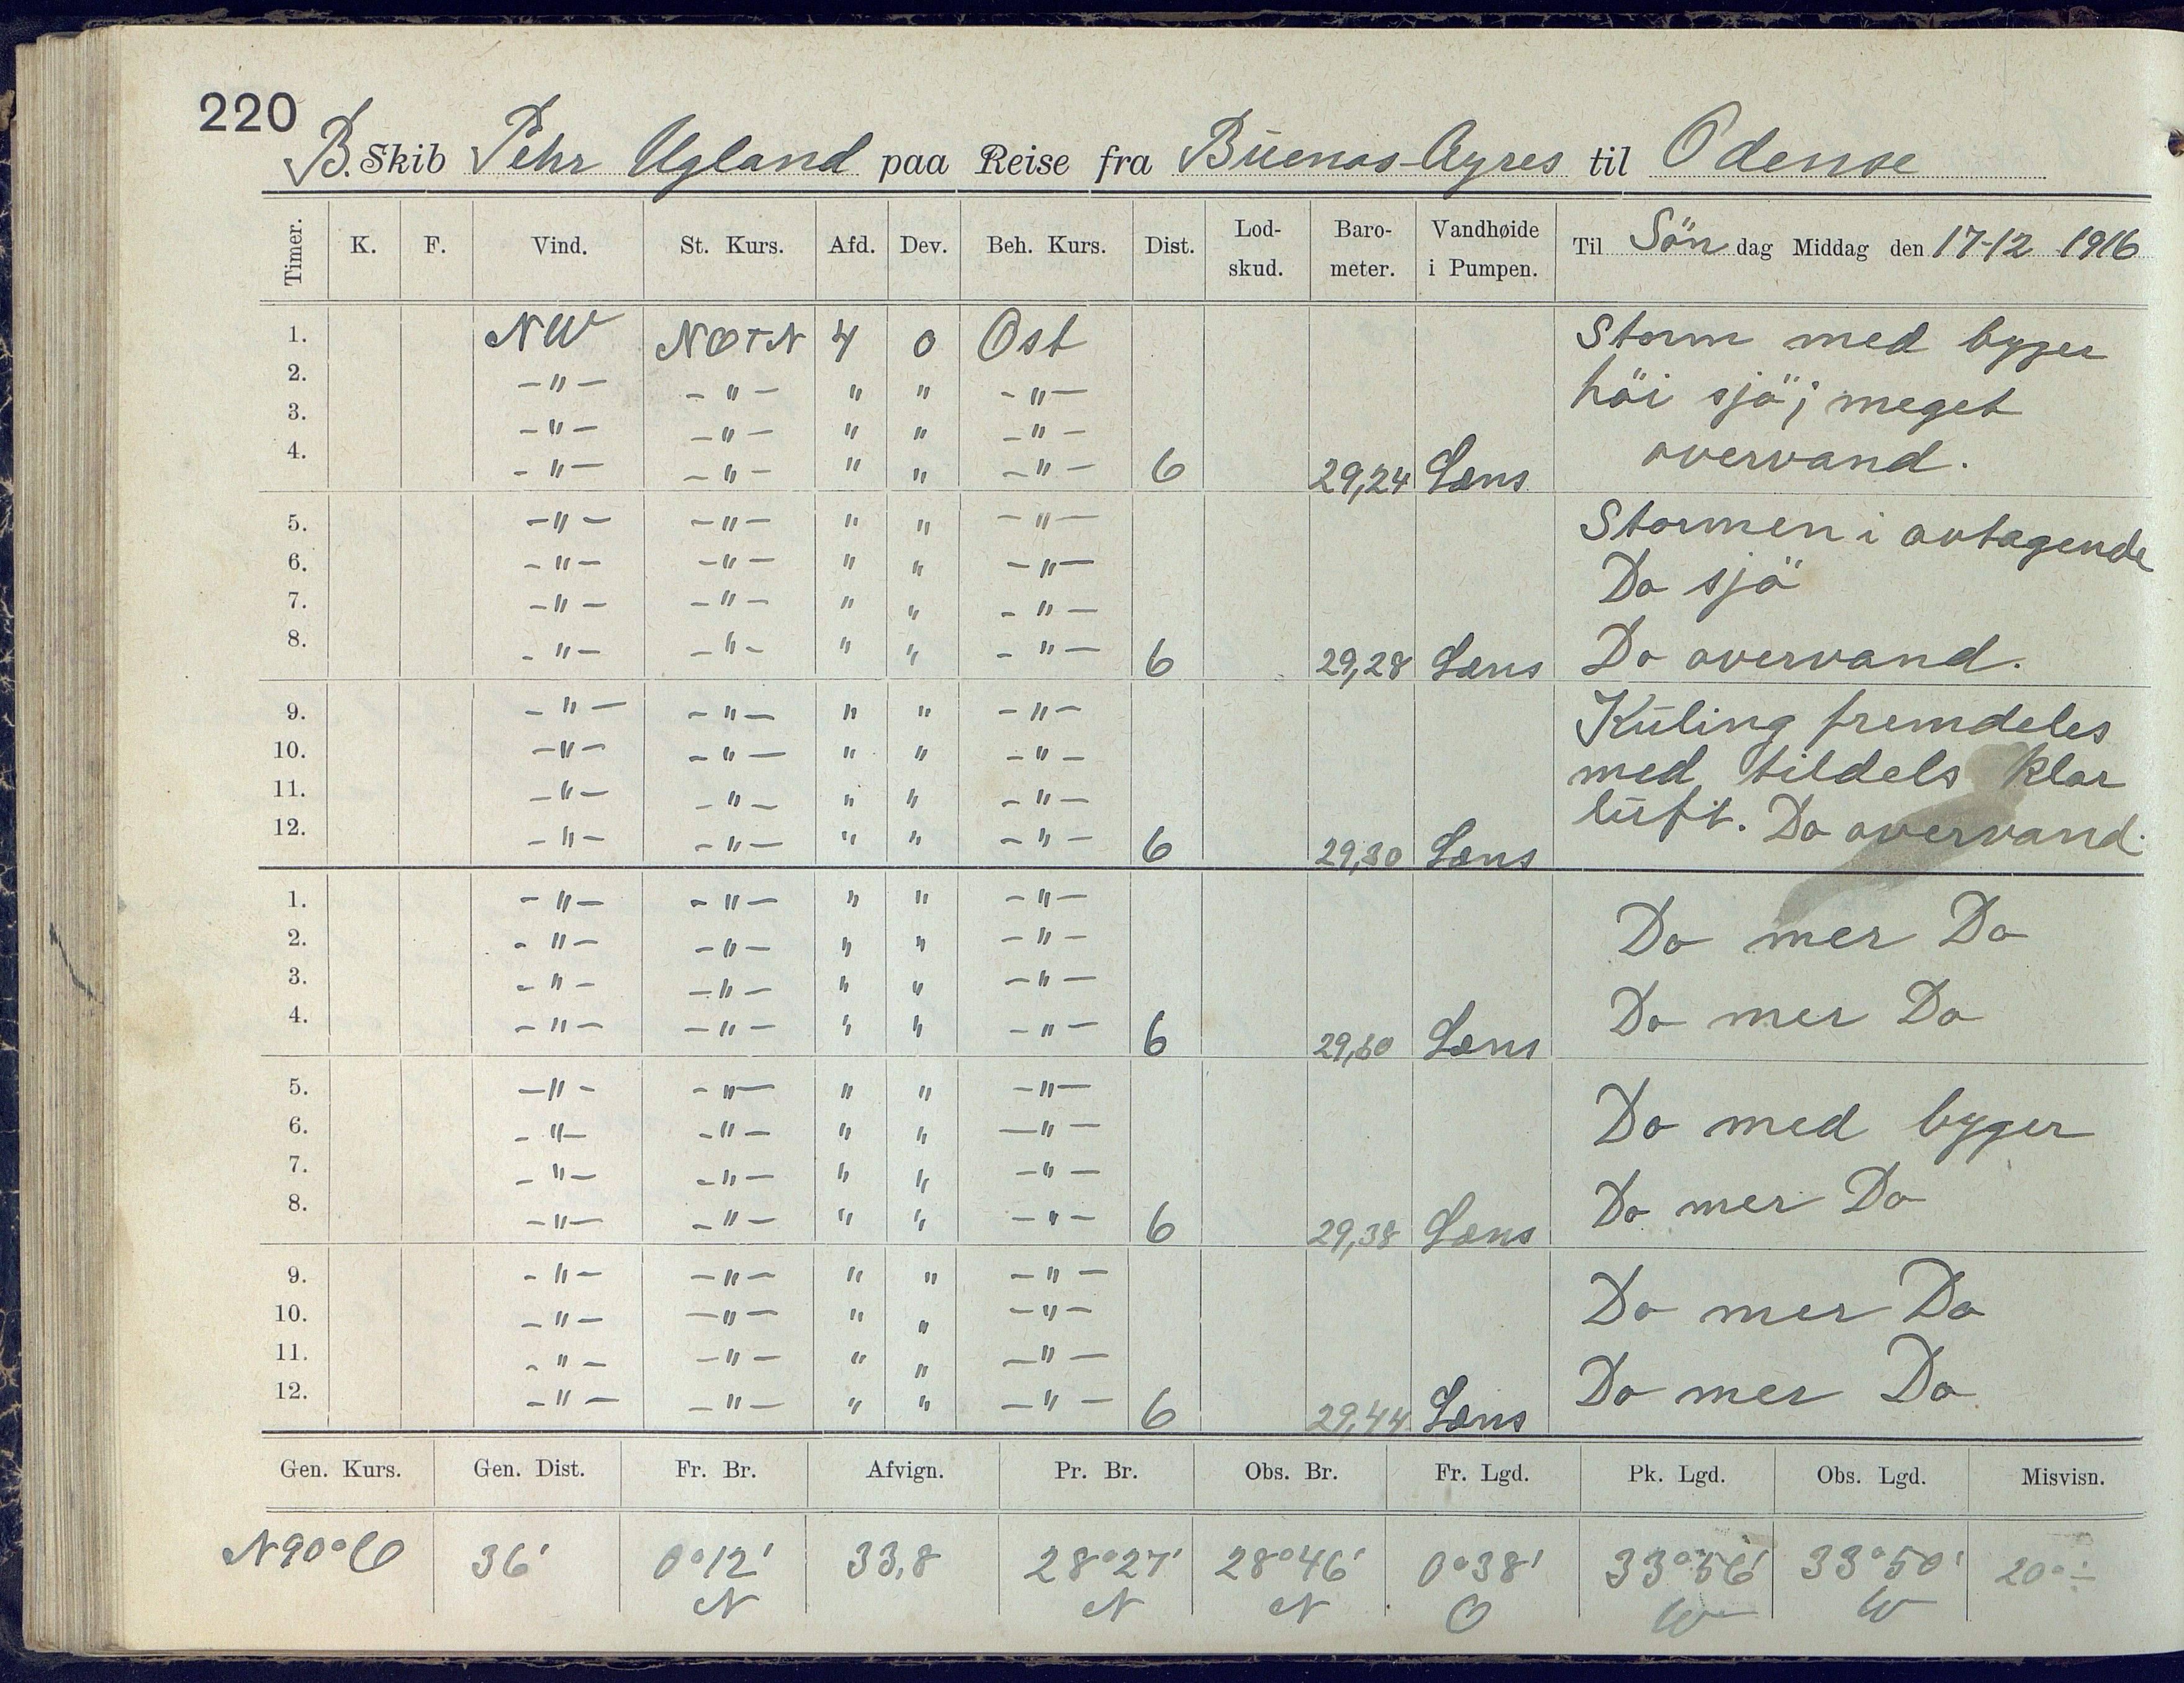 220
B. Skib Pehr Ugland paa Reise fra Buenos-Ayres til Odense
Timer. K. F. Vind. St. Kurs. Afd. Dev. Beh. Kurs. Dist. Lod-skud. Baro-meter. Vandhøide i Pumpen. Til Søndag Middag den 17-12 1916
1. NW NOTN 4 0 Ost Storm med byger
2. -"- -"- " " -"- höi sjö; meget
3. -"- -"- " " -"-
4. -"- -"- " " -"- 6 29,24 Læns overvand.
5. -"- -"- " " -"- Stormen i avtagende
6. -"- -"- " " -"- Do sjö
7. -"- -"- " " -"-
8. -"- -"- " " -"- 6 29,28 Læns Do overvand.
9. -"- -"- " " -"- Kuling fremdeles
10. -"- -"- " " -"- med tildels klar
11. -"- -"- " " -"- luft. Do overvand.
12. -"- -"- " " -"- 6 29,30 Læns
1. -"- -"- " " -"- Do mer Do
2. -"- -"- " " -"-
3. -"- -"- " " -"- Do mer Do
4. -"- -"- " " -"- 6 29,30 Læns
5. -"- -"- " " -"- Do med byger
6. -"- -"- " " -"-
7. -"- -"- " " -"- Do mer Do
8. -"- -"- " " -"- 6 29,38 Læns
9. -"- -"- " " -"- Do mer Do
10. -"- -"- " " -"-
11. -"- -"- " " -"- Do mer Do
12. -"- -"- " " -"- 6 29,44 Læns
Gen. Kurs. Gen. Dist. Fr. Br. Afvign. Pr. Br. Obs. Br. Fr. Lgd. Pk. Lgd. Obs. Lgd. Misvisn.
N90°O 36' 0°12' 33,8 28°27' 28°46' 0°38' 33°56' 33°50' 20°÷
N N N O W W